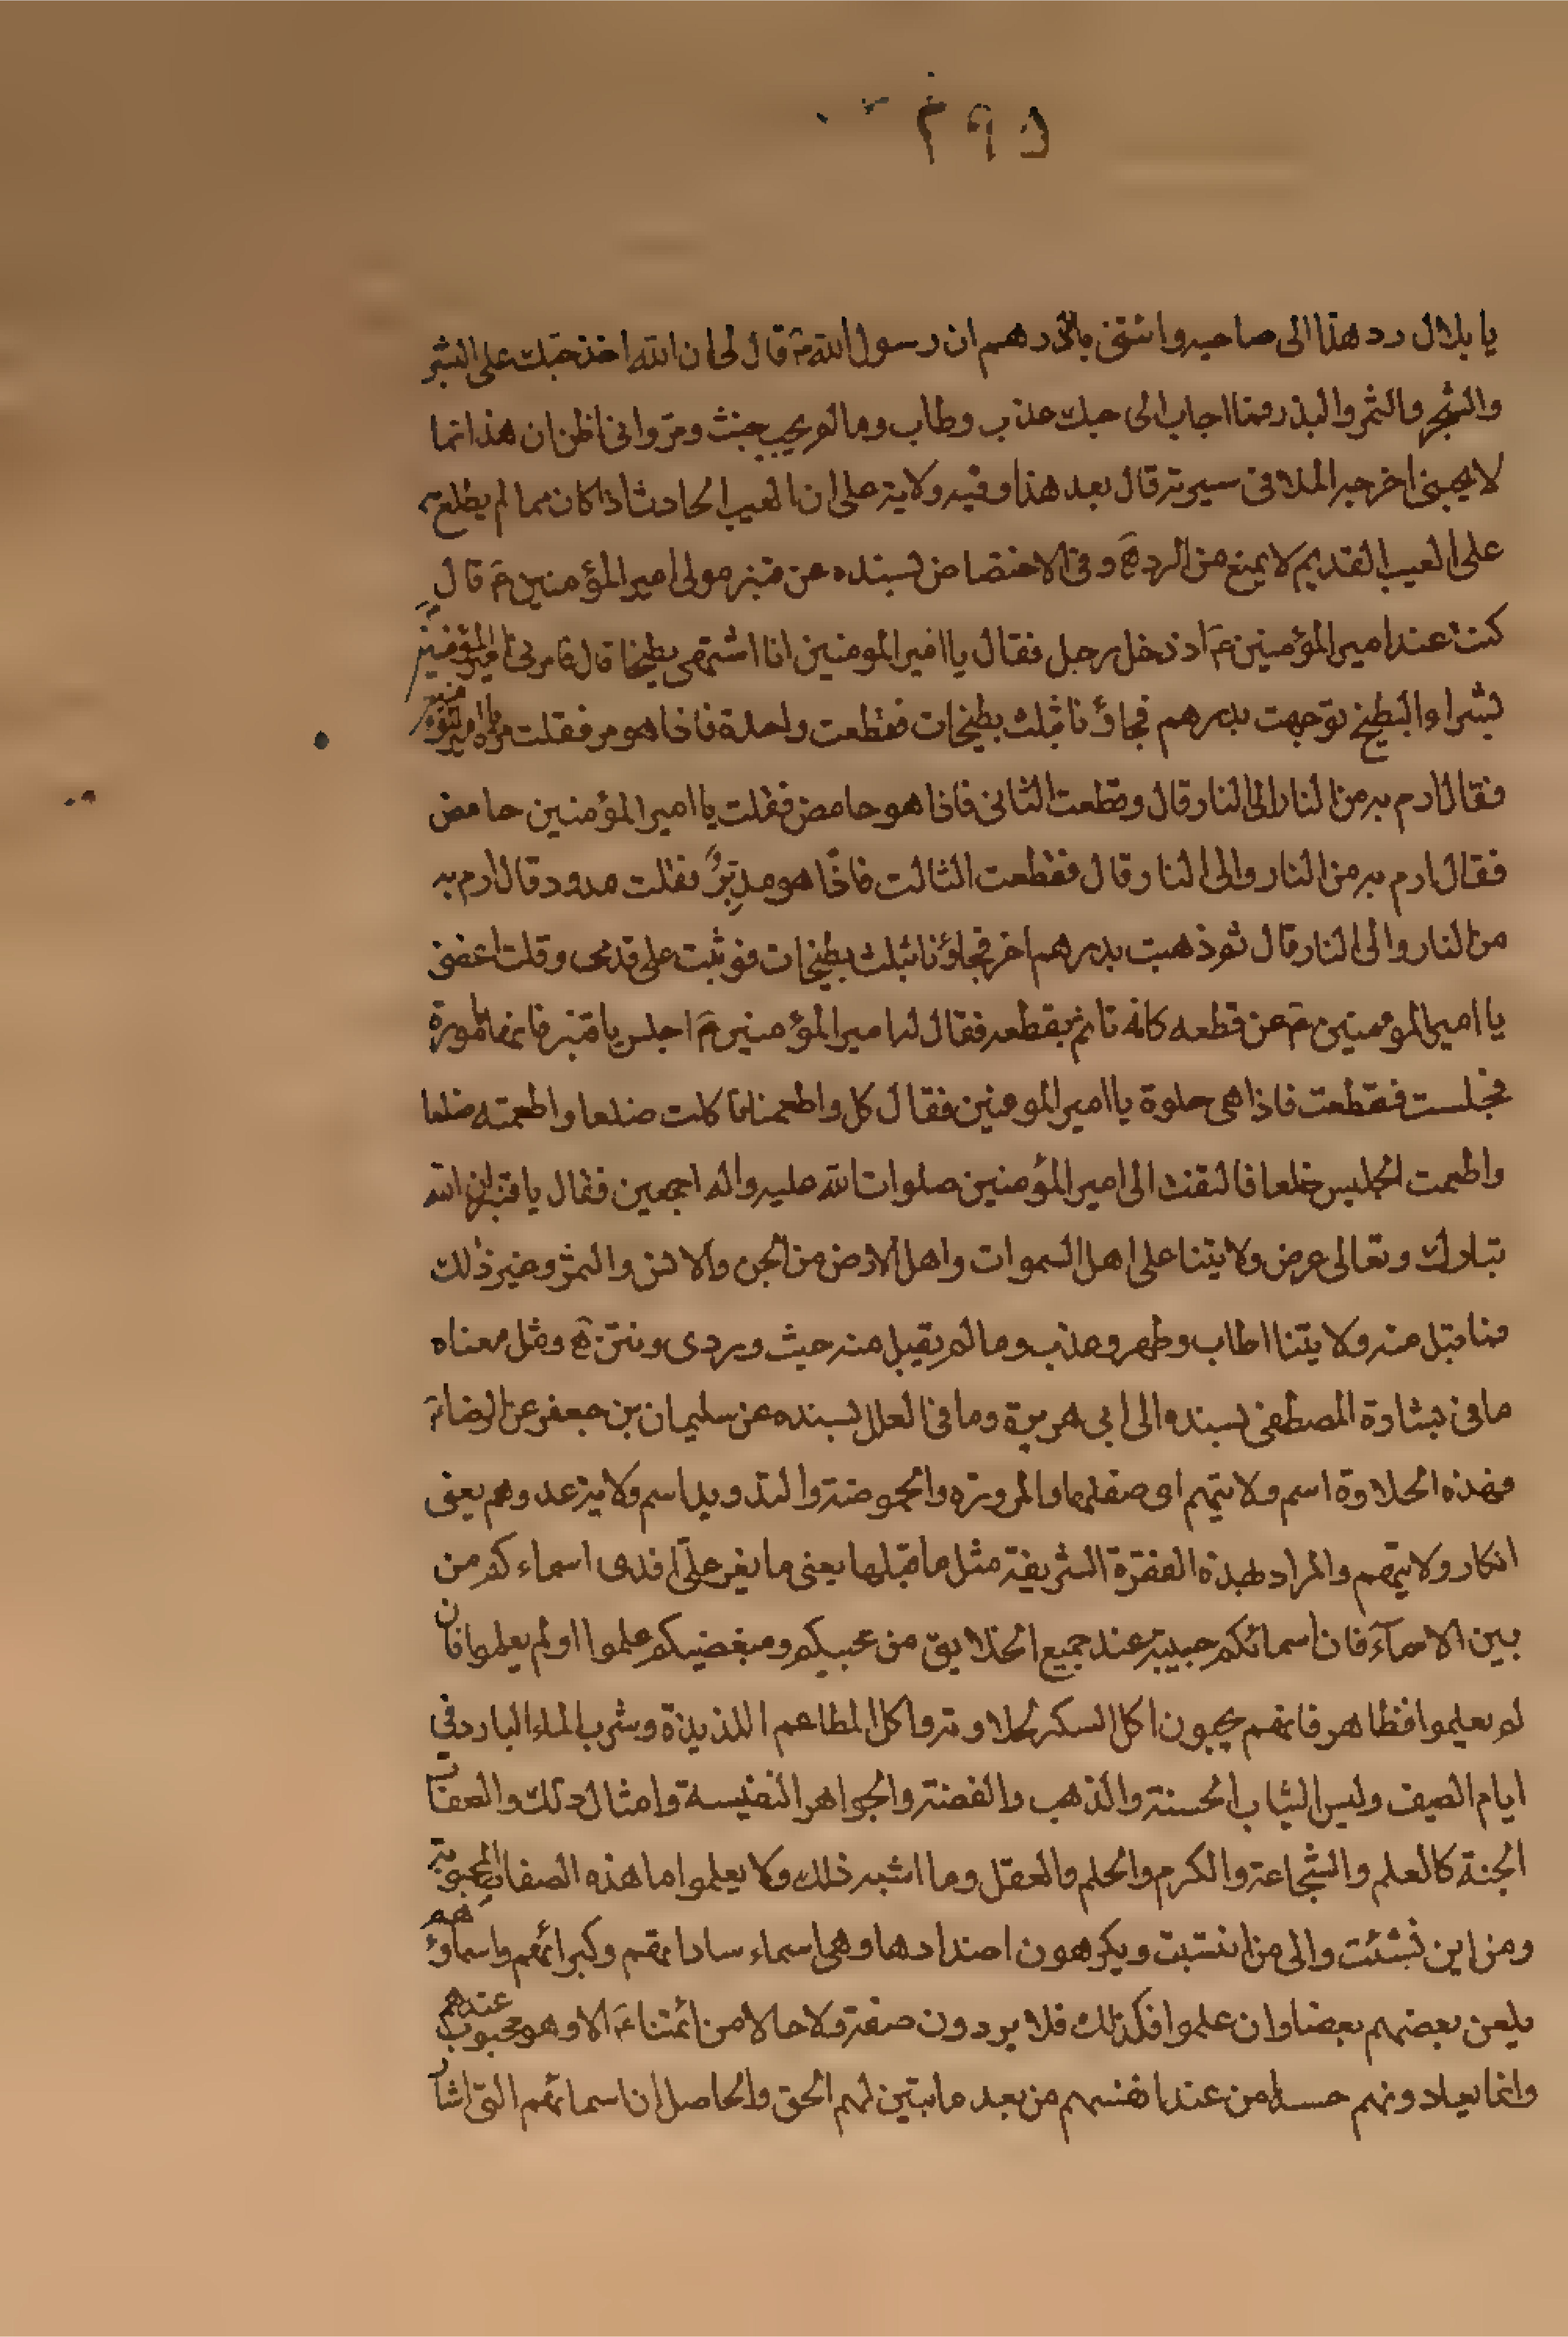 ٥٩٢
يا بلال رد هذا الى صاحبه وائتنى بالدرهم ان رسول الله ص قال لى ان الله اخذ حبك على البشر
والشجر والثمر والبذر فما اجاب الى حبك عذب وطاب وما لم يجب خبث ومر وانى اظن ان هذا مما
لا يحبنى اخرجه الملا فى سيرته قال بعد هذا وفيه دلالة على ان العيب الحادث اذا كان مما لم يطلع به
على العيب القديم لا يمنع من الرد هج وفى الاختصاص بسنده عن قنبر مولى امير المؤمنين ع قال
كنت عند امير المؤمنين ع اذ دخل رجل فقال يا امير المومنين انا اشتهى بطيخا قال فامرنى امير المؤمنين
بشراء البطيخ توجهت بدرهم فجاؤنا بثلث بطيخات فقطعت واحدة فاذا هو مر فقلت مر يا امير المؤمنين
فقال ارم به من النار الى النار قال وقطعت الثانى فاذا هو حامض فقلت يا امير المؤمنين حامض
فقال ارم به من النار والى النار قال فقطعت الثالث فاذا هو مدود فقلت مدود قال ارم به
من النار والى النار قال ثم ذهبت بدرهم اخر فجاؤنا بثلث بطيخات فوثبت على قدمى وقلت اعفنى
يا امير المومنين ع عن قطعه كانه تاثم بقطعه فقال له امير المؤمنين ع اجلس يا قنبر فانها مامورة
فجلست فقطعت فاذا هى حلوة يا امير المومنين فقال كل واطعمنا فاكلت ضلعا واطعمته ضلعا
واطعمت الجليس ضلعا فالتفت الى امير المؤمنين صلوات الله عليه واله اجمعين فقال يا قنبر ان الله
تبارك وتعالى عرض ولايتنا على اهل السموات واهل الارض من الجن والانس والثمر وغير ذلك
فما قبل منه ولايتنا اطاب وطهر وعذب وما لم يقبل منه خبث وردى ونتن هج ومثل معناه
ما فى بشارة المصطفى بسنده الى ابى هريرة وما فى العلل بسنده عن سليمان بن جعفر عن الرضا ع
فهذه الحلاوة اسم ولايتهم اى صفتها والمرورة والحموضة والتدويد اسم ولاية عدوهم يعنى
انكار ولايتهم والمراد بهذة الفقرة الشريفة مثل ما قبلها يعنى ما يغر على افدى اسماءكم من
بين الاسمآء فان اسمائكم حبيبة عند جميع الخلايق من محبيكم ومبغضيكم علموا اولم يعلموا فان
لم يعلموا فظاهر فانهم يحبون اكل السكر لحلاوته واكل المطاعم اللذيذة وشرب الماء البارد فى
ايام الصيف ولبس الثياب الحسنة والذهب والفضة والجواهر النفيسة وامثال ذلك والصفات
الحسنة كالعلم والشجاعة والكرم والحلم والعقل وما اشبه ذلك ولا يعلموا ما هذه الصفات المحبوبة
ومن اين نشئت والى من انتسبت ويكرهون اضدادها وهى اسماء ساداتهم وكبرائهم واسماؤهم
يلعن بعضهم بعضا وان علموا فكذلك فلا يردون صفة ولا حالا من ائمتنا ع الا وهو محبوب عندهم
وانما يعادونهم حسدا من عند انفسهم من بعد ما تبين لهم الحق والحاصل ان اسمائهم التى اشار